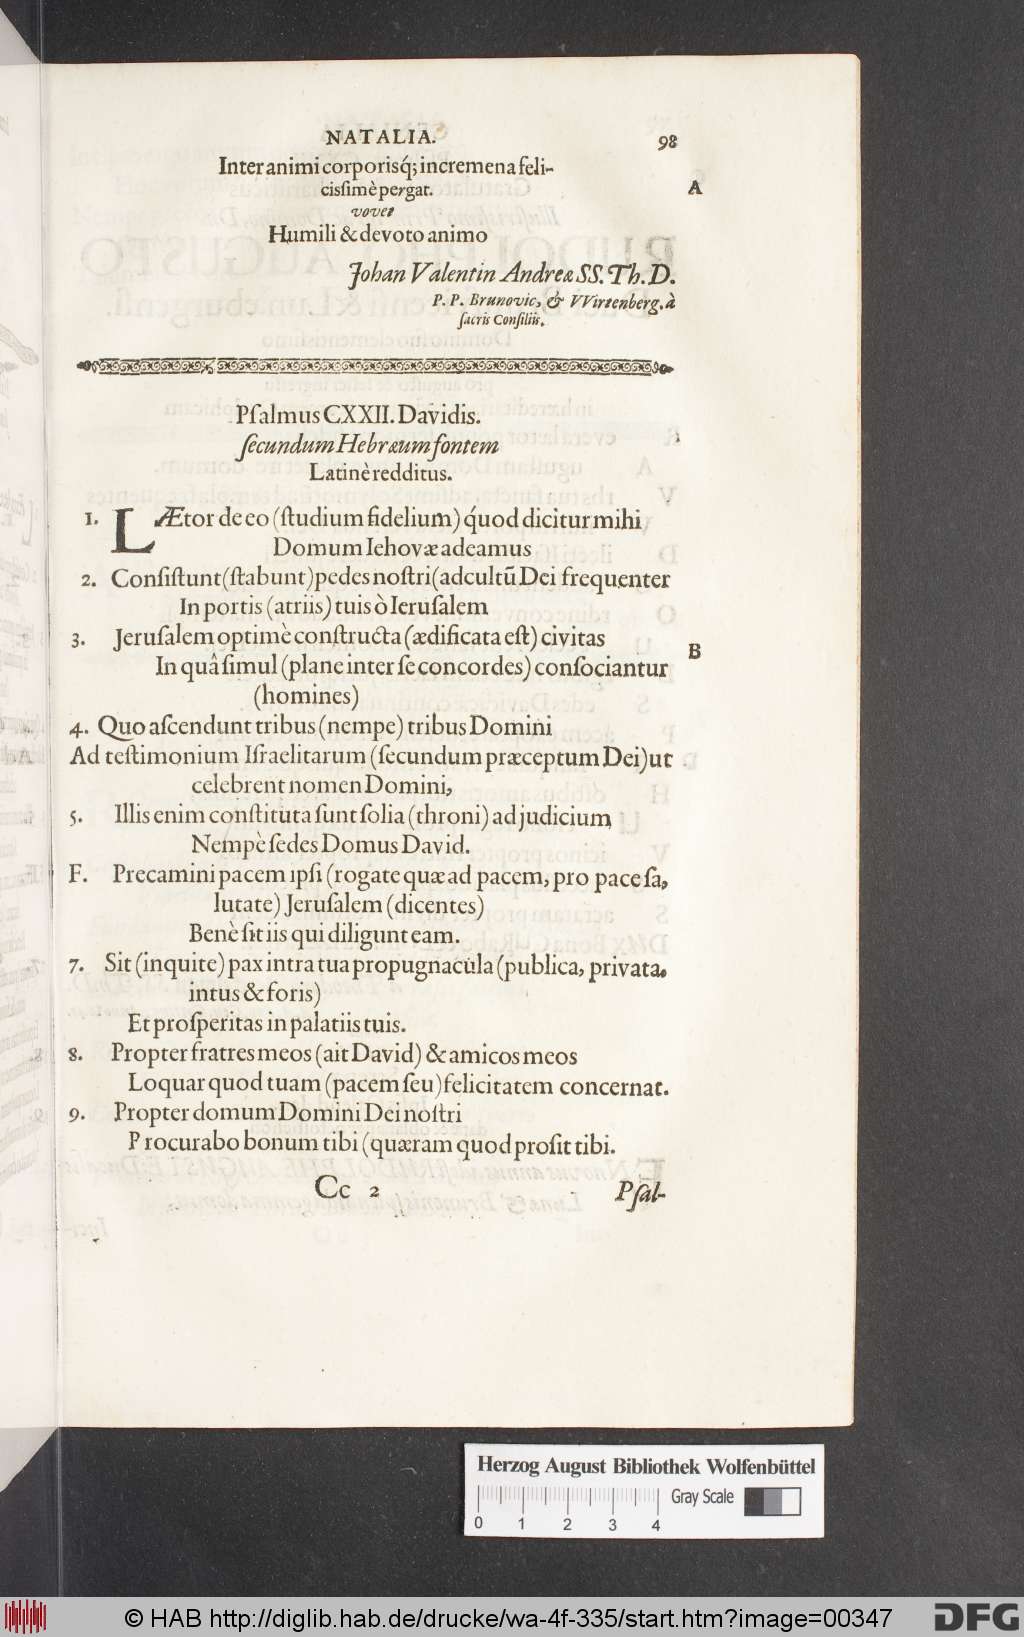 NATALIA. 98
Inter animi corporisq́; incremena feli-
cissimè pergat. A
vovet
Humili & devoto animo
Johan Valentin Andreæ SS. Th. D.
P. P. Brunovic, & VVirtenberg. à
sacris Consiliis.
Psalmus CXXII. Davidis.
secundum Hebræum fontem
Latinè redditus.
1. LÆtor de eo (studium fidelium) q́uod dicitur mihi
Domum Iehovæ adeamus
2. Consistunt (stabunt) pedes nostri (ad cultũ Dei frequenter
In portis (atriis) tuis ò Ierusalem
3. Jerusalem optimè constructa (ædificata est) civitas
In quâ simul (plane inter se concordes) consociantur B
(homines)
4. Quo ascendunt tribus (nempe) tribus Domini
Ad testimonium Israelitarum (secundum præceptum Dei) ut
celebrent nomen Domini,
5. Illis enim constituta sunt solia (throni) ad judicium,
Nempè sedes Domus David.
F. Precamini pacem ipsi (rogate quæ ad pacem, pro pace sa,
lutate) Jerusalem (dicentes)
Benè sit iis qui diligunt eam.
7. Sit (inquite) pax intra tua propugnacula (publica, privata,
intus & foris)
Et prosperitas in palatiis tuis.
8. Propter fratres meos (ait David) & amicos meos
Loquar quod tuam (pacem seu) felicitatem concernat.
9. Propter domum Domini Dei nostri
Procurabo bonum tibi (quæram quod prosit tibi.
Cc 2 Psal-
Herzog August Bibliothek Wolfenbüttel
Gray Scale
0 1 2 3 4
© HAB http://diglib.hab.de/drucke/wa-4f-335/start.htm?image=00347 DFG